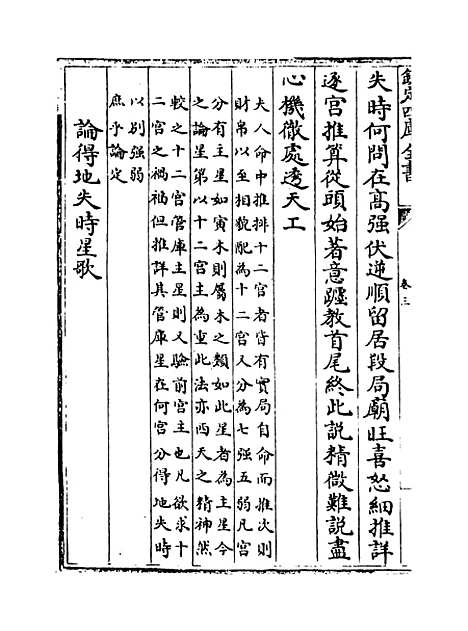 欽定四庫全書
卷三
失時何問在高强伏逆順留居段局廟旺喜怒細推詳
逐宫推算從頭始著意躔教首尾終此説精微難説盡
心機微處透天工
夫人命中推排十二宫者皆有實局自命而推次則
財帛以至相貌配為十二宫又分為七强五弱凡宫
分有主星如寅木則屬木之類如此星者為主星今
之論星第以十二宫主為重此法亦西天之精神然
較之十二宫管庫主星則又驗前宫主也凡欲求十
二宫之禍福但推詳其管庫星在何宫分得地失時
以别强弱
庶乎論定
論得地失時星歌